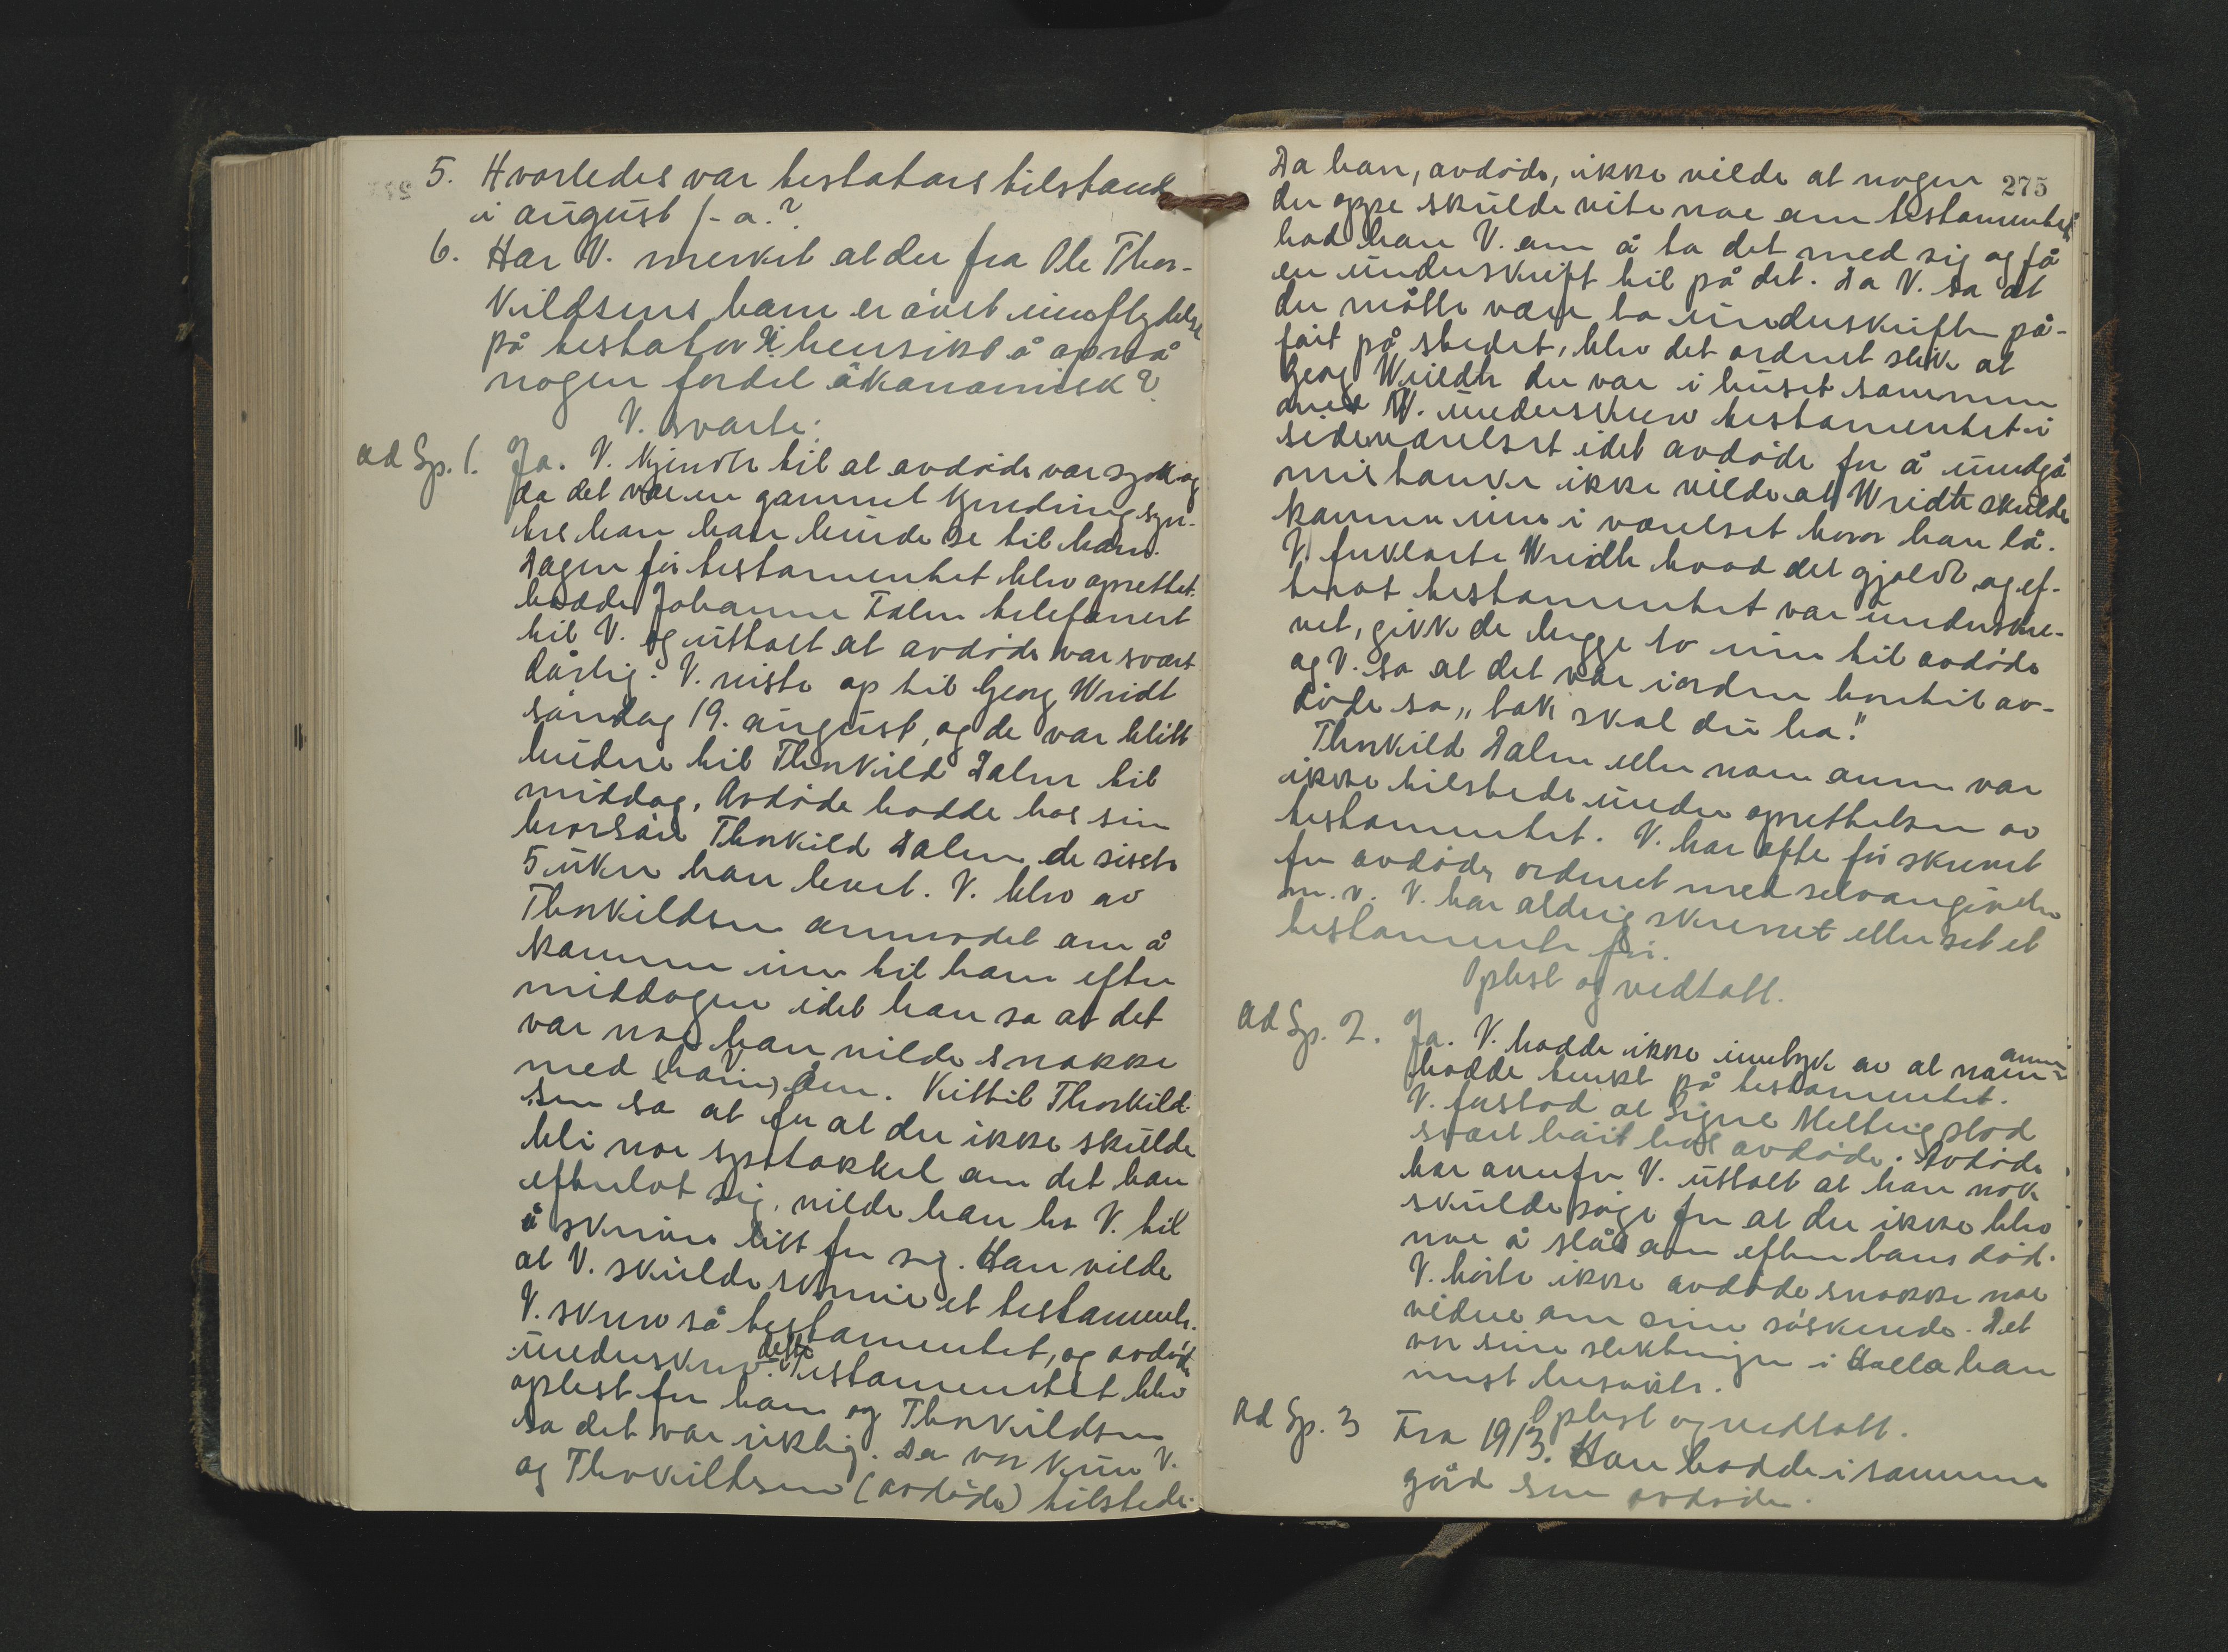 5. Hvorledes var testators tilstand
i august f. a.?
6. Har V. merket at der fra Ole Thor-
kildsens ham er øvet innflydelse
på testator i hensikt å opnå
nogen fordel økonomisk?
V. svarte:
ad Sp. 1. Ja. V. kjendte til at avdøde var syk og
da det var en gammel kjending syn-
tes han han burde se til ham.
Dagen før testamentet blev oprettet
hadde Johanne Dalen telefonert
til V. og uttalt at avdøde var svært
dårlig. V. reiste op til Georg Wridt
søndag 19. august, og de var blitt
budne til Thorkild Dalen til
middag. Avdøde bodde hos sin
brorsøn Thorkild Dalen de siste
5 uker han levet. V. blev av
Thorkildsen anmodet om å
komme inn til ham efter
middagen idet han sa at det
var noe han vilde snakke
med (ham) om. Kittil Thorkild-
sen sa at for at der ikke skulde
bli noe spetakkel om det han
efterlot sig, vilde han ha V. til
å skrive litt for sig. Han vilde
at V. skulde skrive et testamente.
V. skrev så testamentet, og avdøde
underskrev dette. Testamentet blev
oplest for ham og Thorkildsen
sa det var riktig. Da var kun V.
og Thorkildsen (avdøde) tilstede.
275
Da han, avdøde, ikke vilde at nogen
der oppe skulde vite noe om testamentet,
bad han V. om å ta det med sig og få
en underskrift til på det. Da V. sa at
der måtte være to underskrifter på-
ført på stedet, blev det ordnet slik at
Georg Wridt der var i huset sammen
med V. underskrev testamentet i
sideværelset idet avdøde for å undgå
mistanke ikke vilde at Wridt skulde
komme inn i værelset hvor han lå.
V. forklarte Wridt hvad det gjaldt og ef-
terat testamentet var underskre-
vet, gikk de begge to inn til avdøde
og V. sa at det var iorden hvortil av-
døde sa „takk skal du ha".
Thorkild Dalen eller noen annen var
ikke tilstede under oprettelsen av
testamentet. V. har ofte før skrevet
for avdøde, ordnet med selvangivelse
m. v. V. har aldrig skrevet eller set et
testamente før.
Oplest og vedtatt.
ad Sp. 2. Ja. V. hadde ikke inntrykk av at noen annen
hadde tenkt på testamentet.
V. forstod at Signe Melteig stod
svært høit hos avdøde. Avdøde
har overfor V. uttalt at han nok
skulde sørge for at der ikke blev
noe å slåss om efter hans død.
V. hørte ikke avdøde snakke noe
videre om sine søskende. Det
var sine slektninger i Holla han
mest besøkte.
Oplest og vedtatt.
ad Sp. 3 Fra 1913. Han bodde i samme
gård som avdøde.